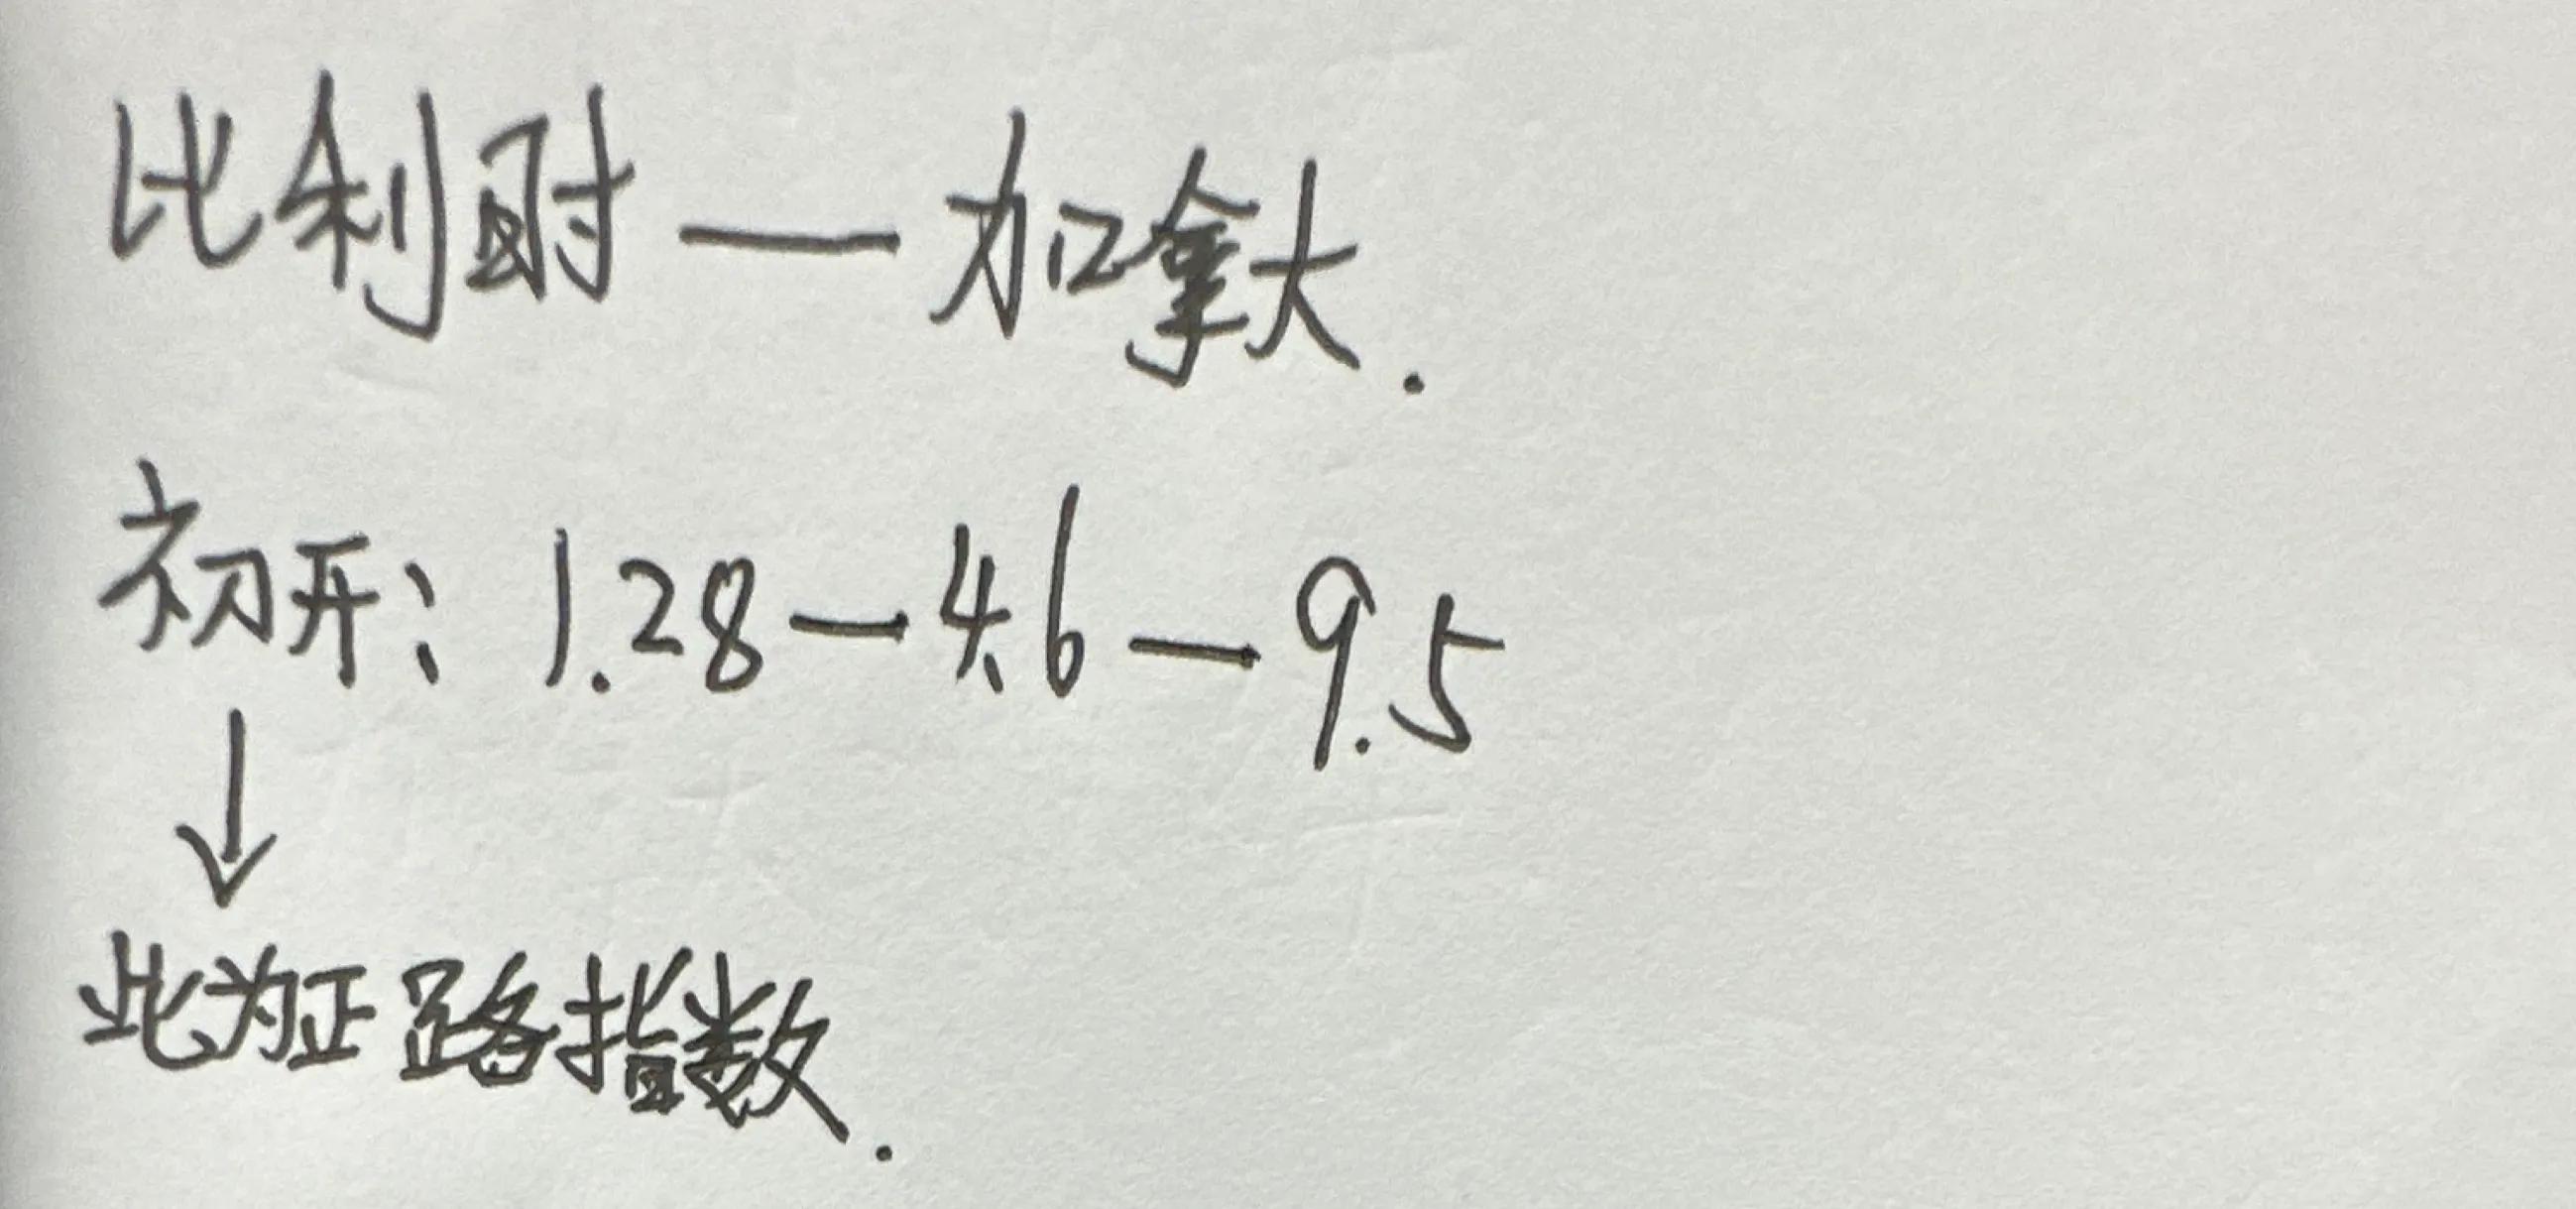 比利时—加拿大.
初开: 1.28—4.6—9.5
↓
此为正路指数.